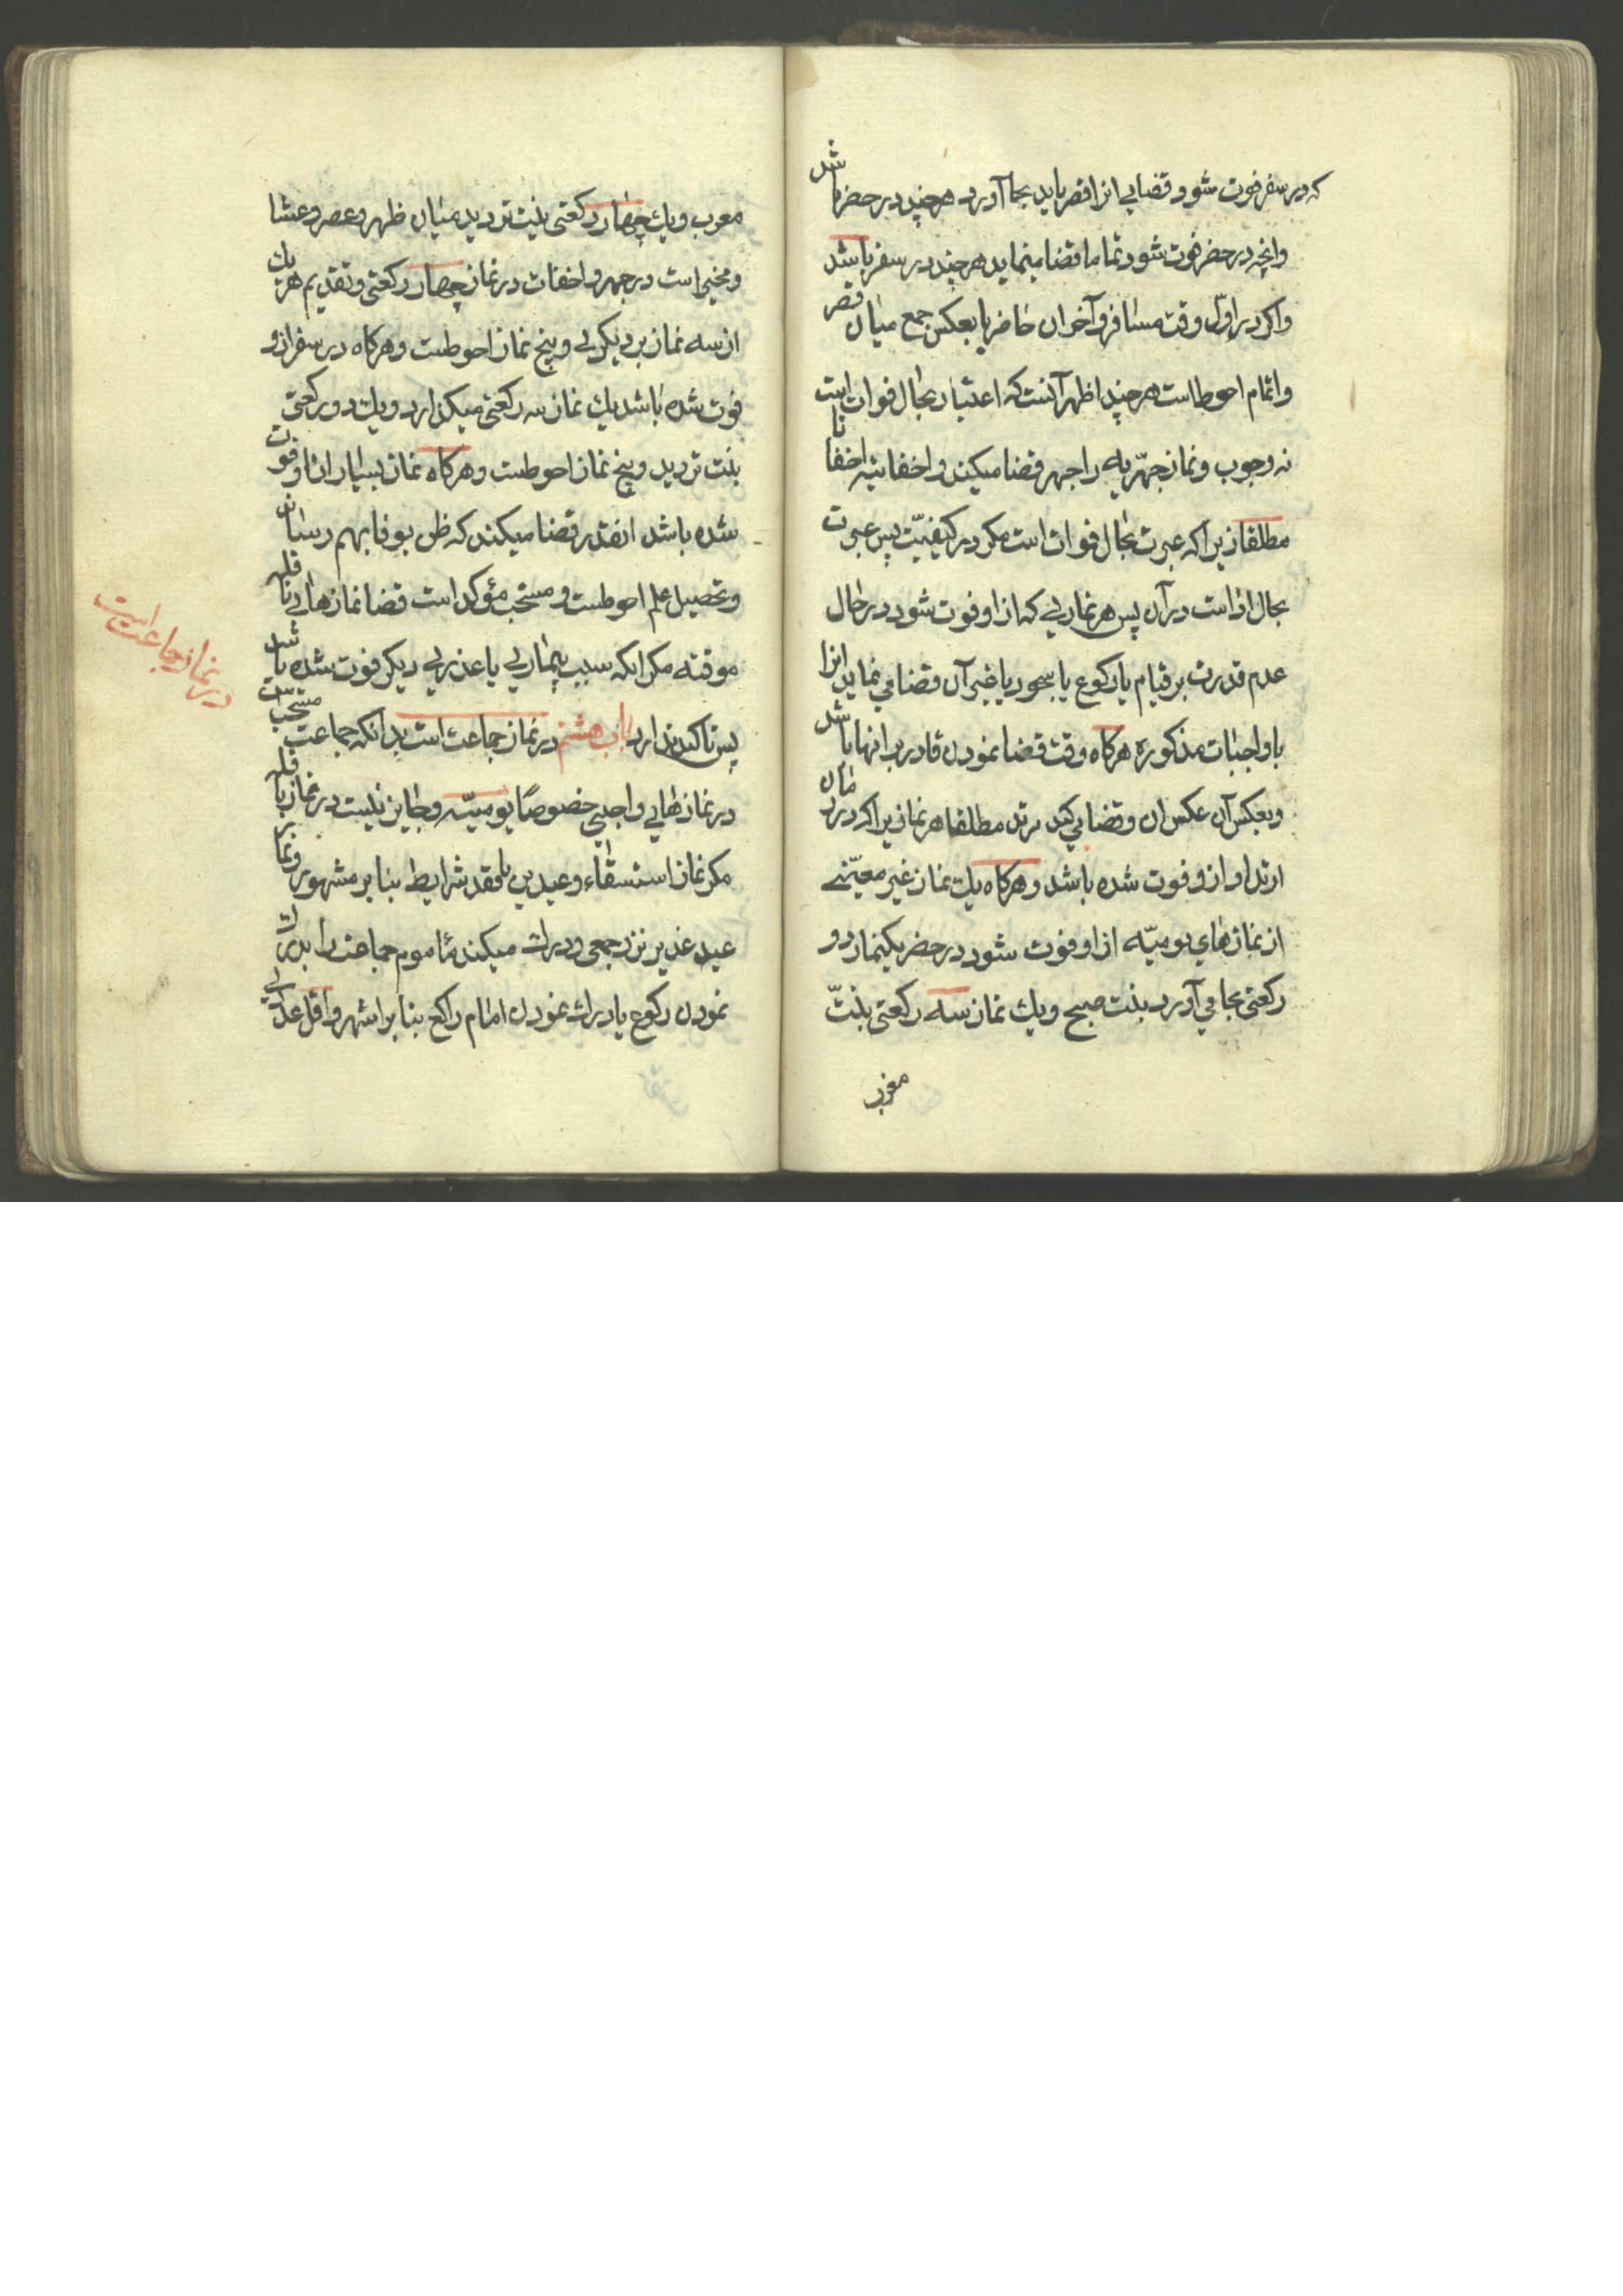 که در سفر فوت شود قضایی انرا قصر باید بجا آورد هرچند در حضر باشد
وانچه در حضر فوت شود تماما قضا مینماید هرچند در سفر باشد
واکر در اوّل وقت مسافر و آخران حاضر یا بعکس جمع میان قصر
واتمام احوطاست هرچند اظهر آنست که اعتبار بحال فوات است
نه وجوب و نماز جهریه را جهر قضا میکند و اخفاتیه را اخفاتا
مطلقا زیرا که عبرت بحال فوات است مکر در کیفیّت پس عبرت
بحال اداست در آن پس هر نمازیی که از او فوت شود در حال
عدم قدرت بر قیام یا رکوع یا سجود یا غیر آن قضا می نماید انرا
با واجبات مذکوره هرکاه وقت قضا نمودن قادر بر انها باشد
وبعکس آن عکس ان و قضا می کند مرتد مطلقا هر نماز یرا که در زمان
ارتداد از و فوت شده باشد و هرکاه یك نماز غیر معیّنے
از نمازهای یومیّه از او فوت شود در حضر یکنماز دو
رکعتی بجا می آورد بنیت صبح ویك نماز سه رکعتی بنیّت
مغرب
مغرب ویك چهار رکعتی بنیت تردید میان ظهر و عصر و عشا
و مخیر است در جهر و اخفات در نماز چهار رکعتی و تقدیم هر یك
از سه نماز بر دیکریی و پنج نماز احوطست و هرکاه در سفر از و
فوت شده باشد یك نماز سه رکعتی میکذارد ویك دو رکعتی
بنیت تردید و پنج نماز احوطست و هرکاه نماز بسیار از او فوت
شده باشد انقدر قضا میکند که ظن بوفا بهم رساند
و تحصیل علم احوطست و مستحب مؤکد است قضا نمازهایی نافله
موقته مکر انکه سبب بیماریی یا عذریی دیکر فوت شده باشد
پس تاکید ندارد باب هشتم در نماز جماعت است بدانکه جماعت مستحب است
در نمازهایی واجبی خصوصًا یومیّه و جایز نیست در نماز نافله
مکر نماز استسقاء و عیدین با فقد شرایط بنا بر مشهور و نماز
عید غدیر نزد جمعی و درك میکند مأموم جماعت را بدرك
نمودن رکوع یا درك نمودن امام راکع بنا بر اشهر و اقل عددی
در نماز جماعت است